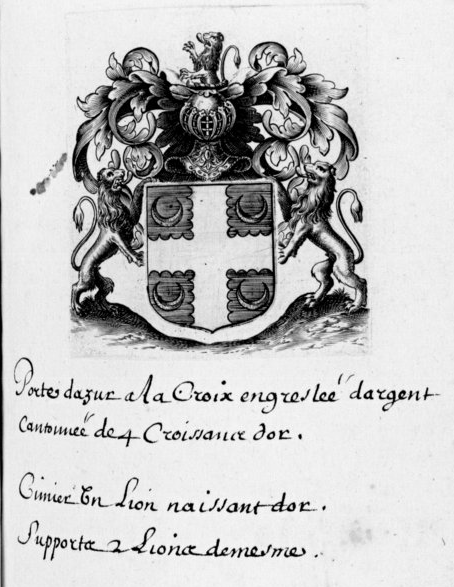 Porte dazur a la Croix engreslée dargent
Cantonneé de 4 Croissans dor.
Cimier Un Lion naissant dor.
Supports 2 Lions demesme.